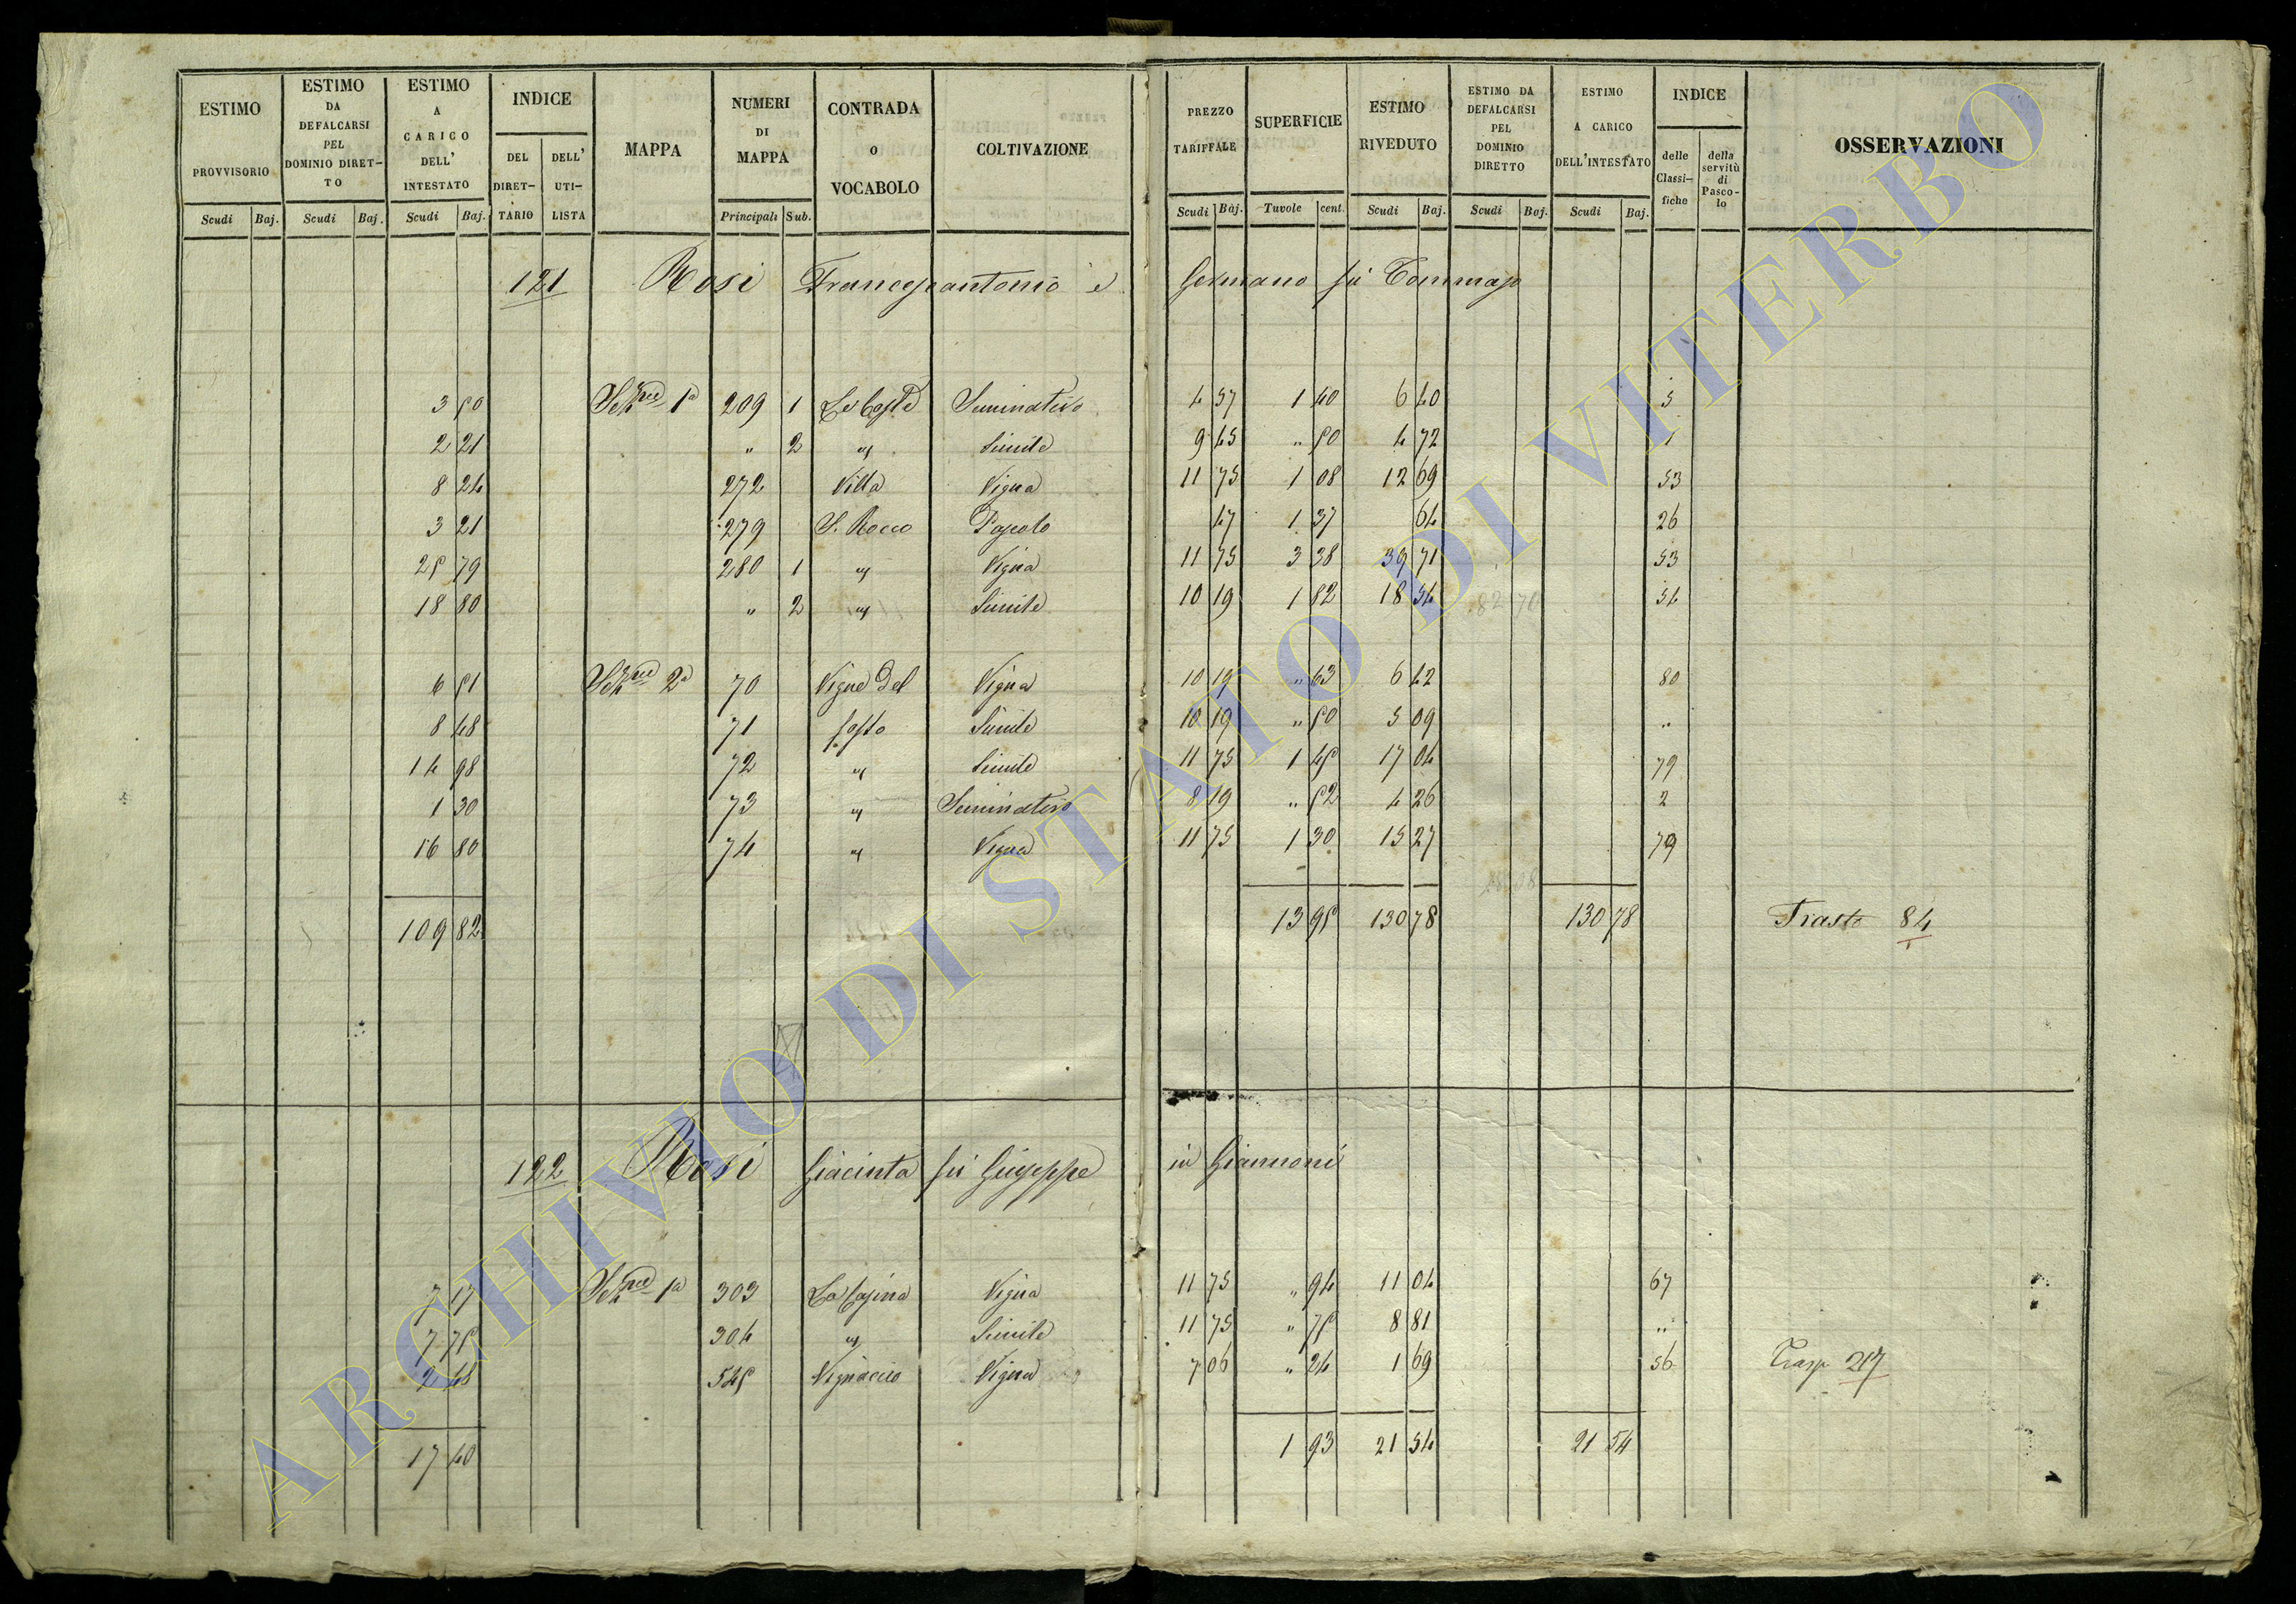 ESTIMO PROVVISORIO | ESTIMO DA DEFALCARSI PEL DOMINIO DIRET-TO | ESTIMO A CARICO DELL' INTESTATO | INDICE DEL DIRET-TARIO | DELL' UTI-LISTA | MAPPA | NUMERI DI MAPPA | CONTRADA O VOCABOLO | COLTIVAZIONE | PREZZO TARIFFALE | SUPERFICIE | ESTIMO RIVEDUTO | ESTIMO DA DEFALCARSI PEL DOMINIO DIRETTO | ESTIMO A CARICO DELL'INTESTATO | INDICE delle Classi-fiche | della servitù di Pasco-lo | OSSERVAZIONI
Scudi | Baj. | Scudi | Baj. | Scudi | Baj. | Principali | Sub. | Scudi | Baj. | Tavole | cent. | Scudi | Baj. | Scudi | Baj. | Scudi | Baj.
121 Rosi Francescantonio e Germano fù Tommaso
3 50 | Sezne 1a | 209 | 1 | Le Coste | Seminativo | 4 57 | 1 40 | 6 40 | 5
2 21 | " | 2 | " | Simile | 9 45 | " 50 | 4 72 | 1
8 24 | 272 | Villa | Vigna | 11 75 | 1 08 | 12 69 | 53
3 21 | 279 | S. Rocco | Pascolo | 47 | 1 37 | 64 | 26
25 79 | 280 | 1 | " | Vigna | 11 75 | 3 38 | 39 71 | 53
18 80 | " | 2 | " | Simile | 10 19 | 1 82 | 18 54 | 54
6 51 | Sezne 2a | 70 | Vigne del | Vigna | 10 19 | " 63 | 6 42 | 80
8 48 | 71 | fosso | Simile | 10 19 | " 50 | 5 09 | "
14 98 | 72 | " | Simile | 11 75 | 1 45 | 17 04 | 79
1 30 | 73 | " | Seminativo | 8 19 | " 52 | 4 26 | 2
16 80 | 74 | " | Vigna | 11 75 | 1 30 | 15 27 | 79
109 82 | 13 95 | 130 78 | 130 78 | 84
122 Rosi Giacinta fù Giuseppe in Giannoni
7 17 | Sezne 1a | 303 | La Casina | Vigna | 11 75 | " 94 | 11 04 | 67
7 75 | 304 | " | Simile | 11 75 | " 75 | 8 81 | "
2 48 | 545 | Vignaccio | Vigna | 7 06 | " 24 | 1 69 | 56 | Trasp. 217
17 40 | 1 93 | 21 54 | 21 54
ARCHIVIO DI STATO DI VITERBO